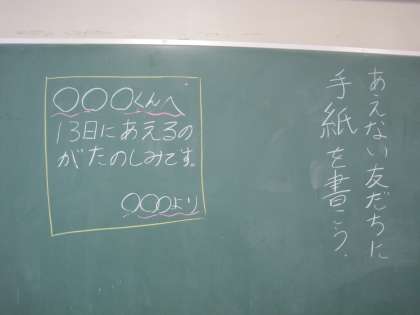 あえない友だちに
手紙を書こう.
〇〇〇くんへ
13日にあえるの
がたのしみです。
〇〇〇より